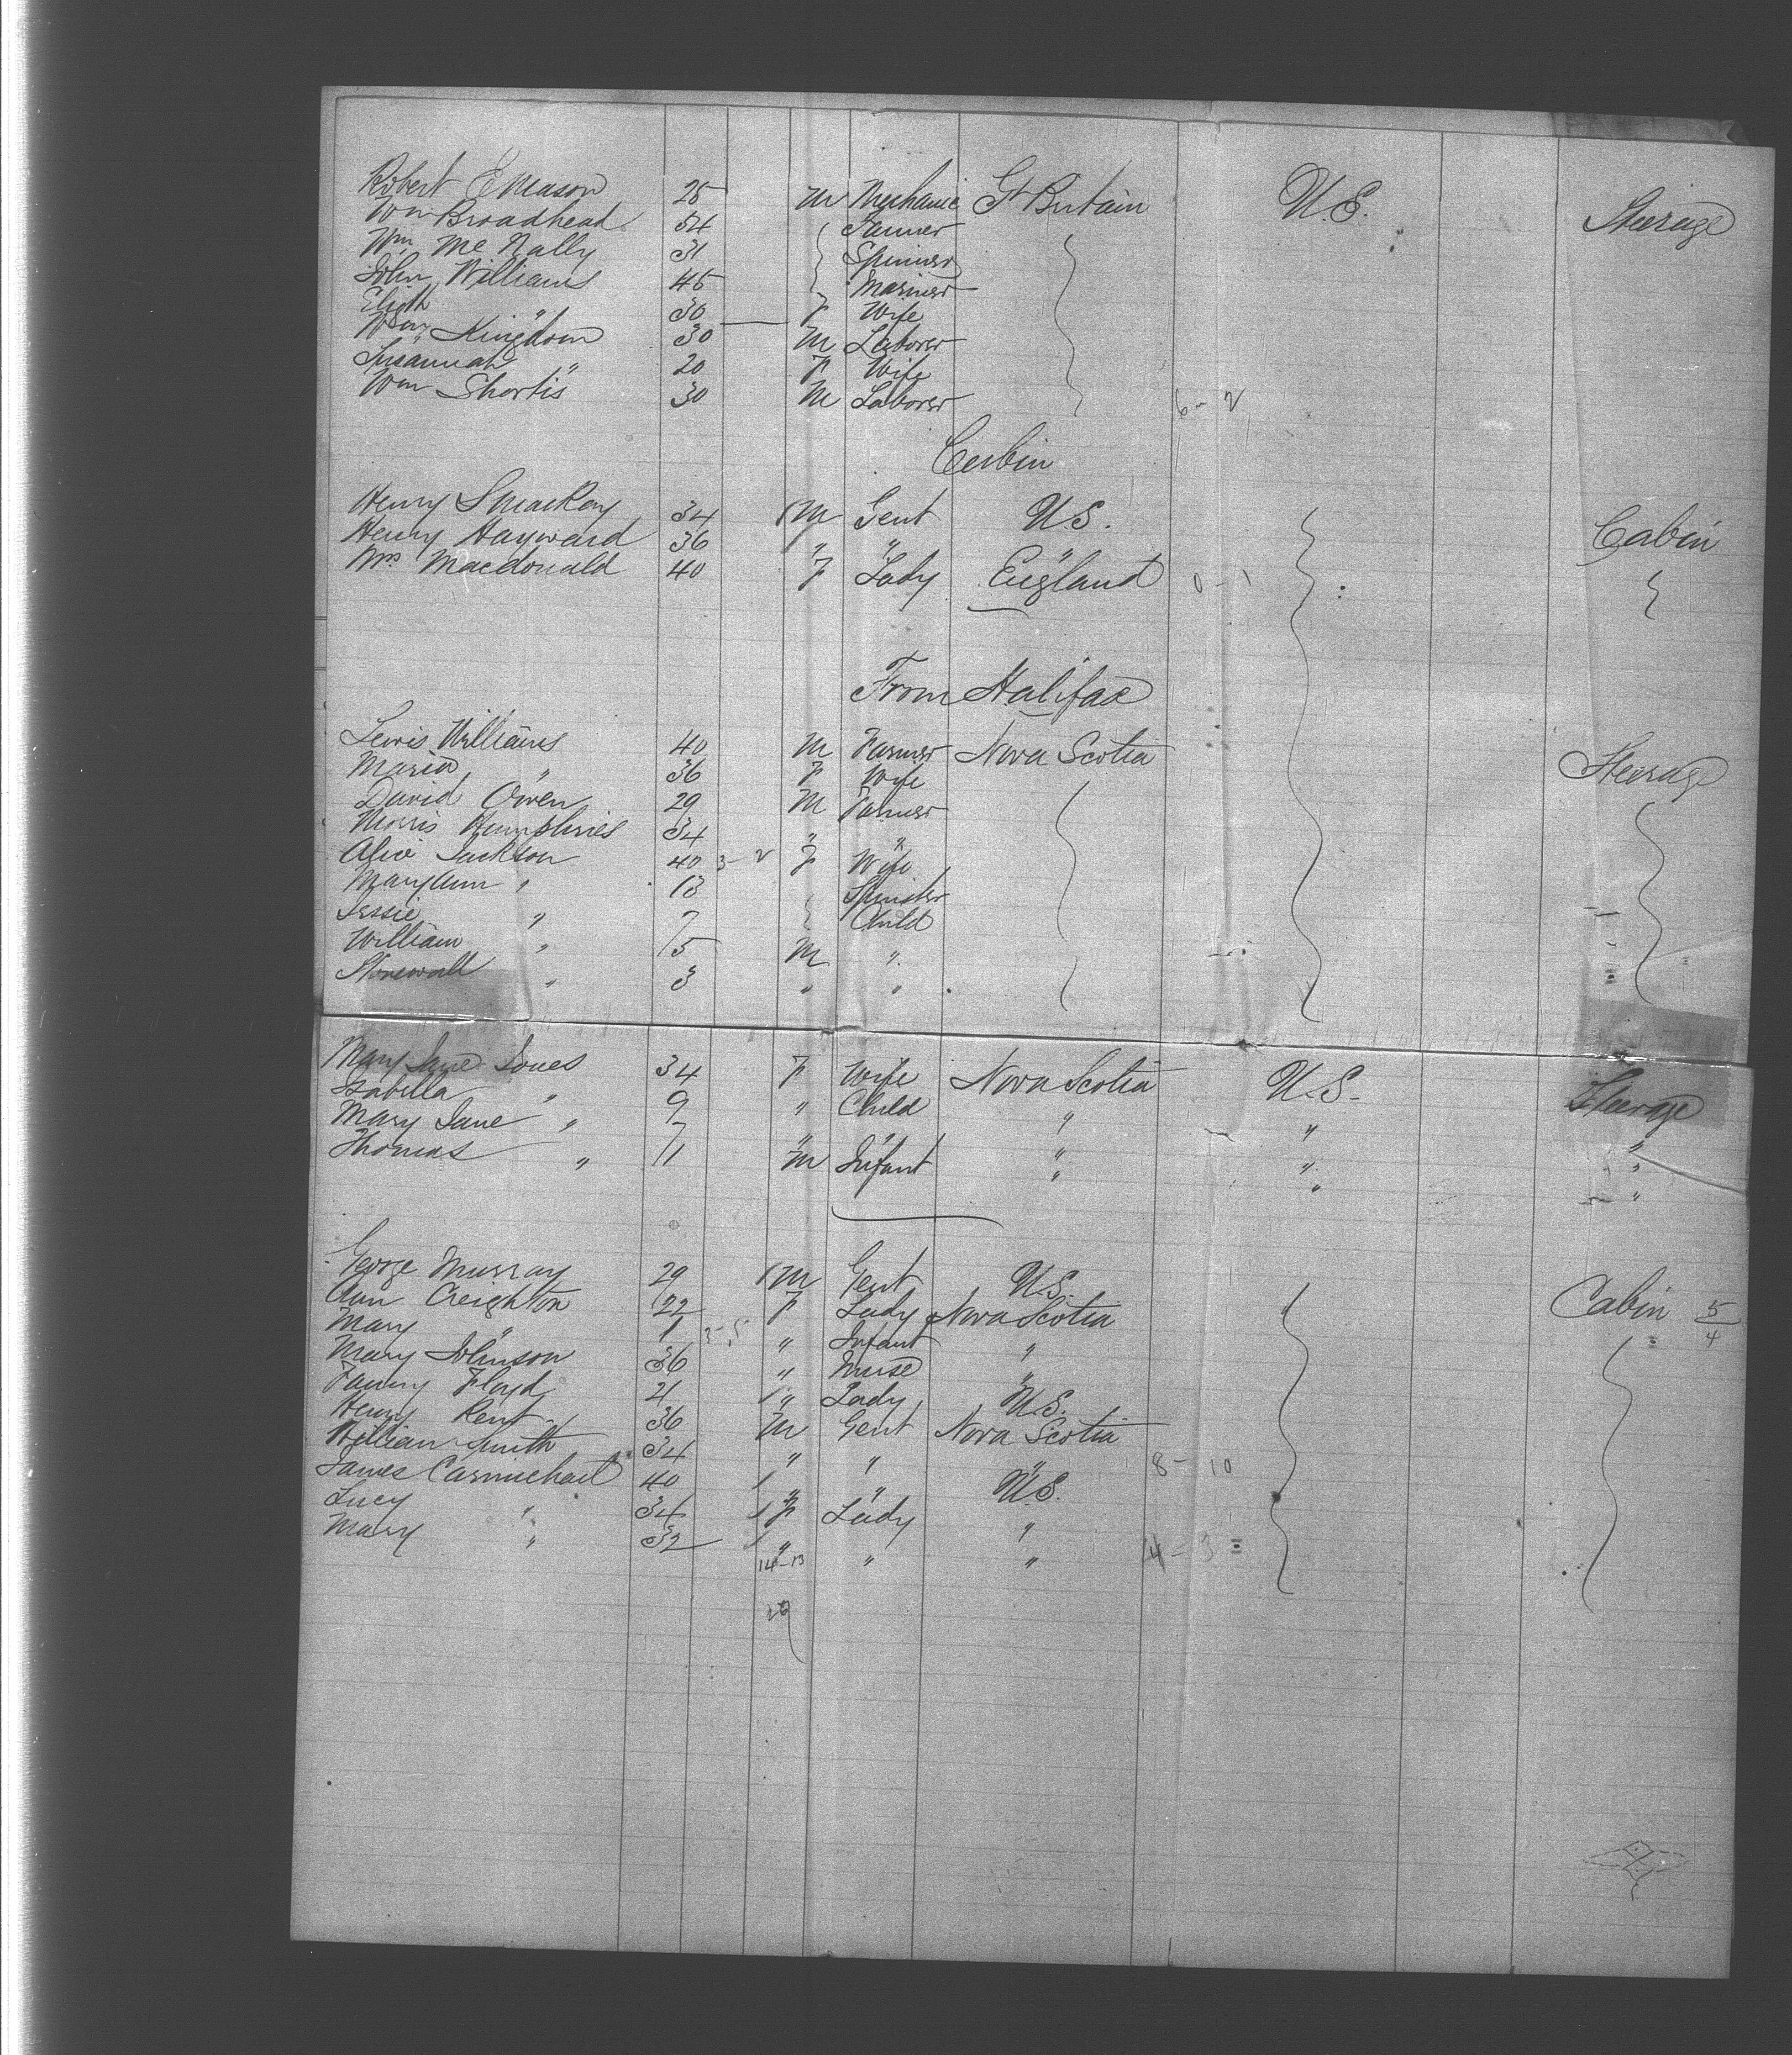 Robert E Mason 25 M Mechanic Gt Britain U.S. Steerage
Wm Broadhead 54 Farmer
Wm Mc Nally 31 Spinner
John Williams 45 Mariner
Elizth " 30 F Wife
Wm Kingdom 30 M Laborer
Susannah " 20 F Wife
Wm Shortis 30 M Laborer 6 - 2
Cabin
Henry S MacKay 34 1 M Gent U.S. Cabin
Henry Hayward 36 " " "
Mrs Macdonald 40 F Lady England 0 - 1
From Halifax
Lewis Williams 40 M Farmer Nova Scotia Steerage
Maria " 36 F Wife
David Owen 29 M Farmer
Morris Humphries 34 " "
Alice Jackson 40 3 - 2 F Wife
Mary Ann " 13 Spinster
Jessie " 7 Child
William " 5 M "
Stonewall " 3 " "
Mary Jane Jones 34 F Wife Nova Scotia U.S. Steerage
Isabella " 9 " Child " " "
Mary Jane " 7 " " " " "
Thomas " 11 M Infant " " "
George Murray 29 1 M Gent U.S. Cabin 5/4
Ann Creighton 22 F Lady Nova Scotia
Mary " 1 " Infant "
Mary Johnson 36 " Nurse "
Fanny Floyd 21 1 " Lady U.S.
Henry Kent 36 M Gent Nova Scotia
William Smith 34 " " " 8 - 10
James Carmichael 40 1 " " U.S.
Lucy " 34 1 F Lady "
Mary " 32 1 " " " 4 - 3 =
14 - 13